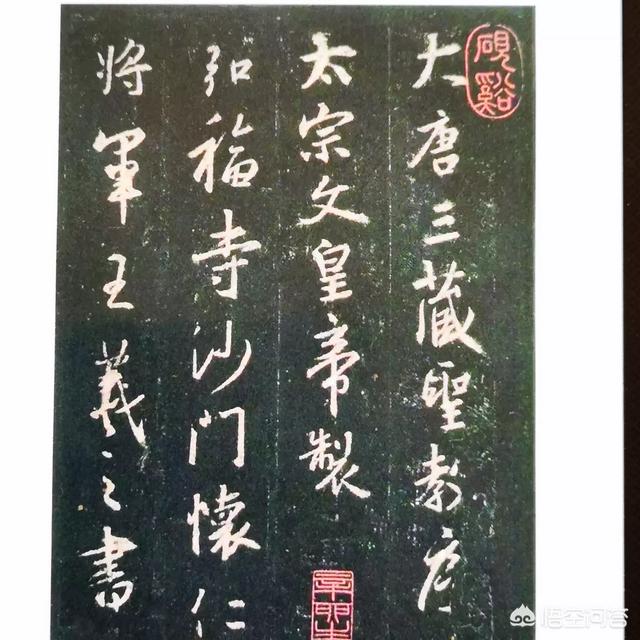 大唐三藏聖教序
太宗文皇帝製
弘福寺沙門懷仁
將軍王羲之書
硯谿
悟空问答